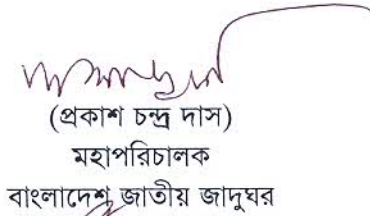 (প্রকাশ চন্দ্র দাস)
মহাপরিচালক
বাংলাদেশ জাতীয় জাদুঘর